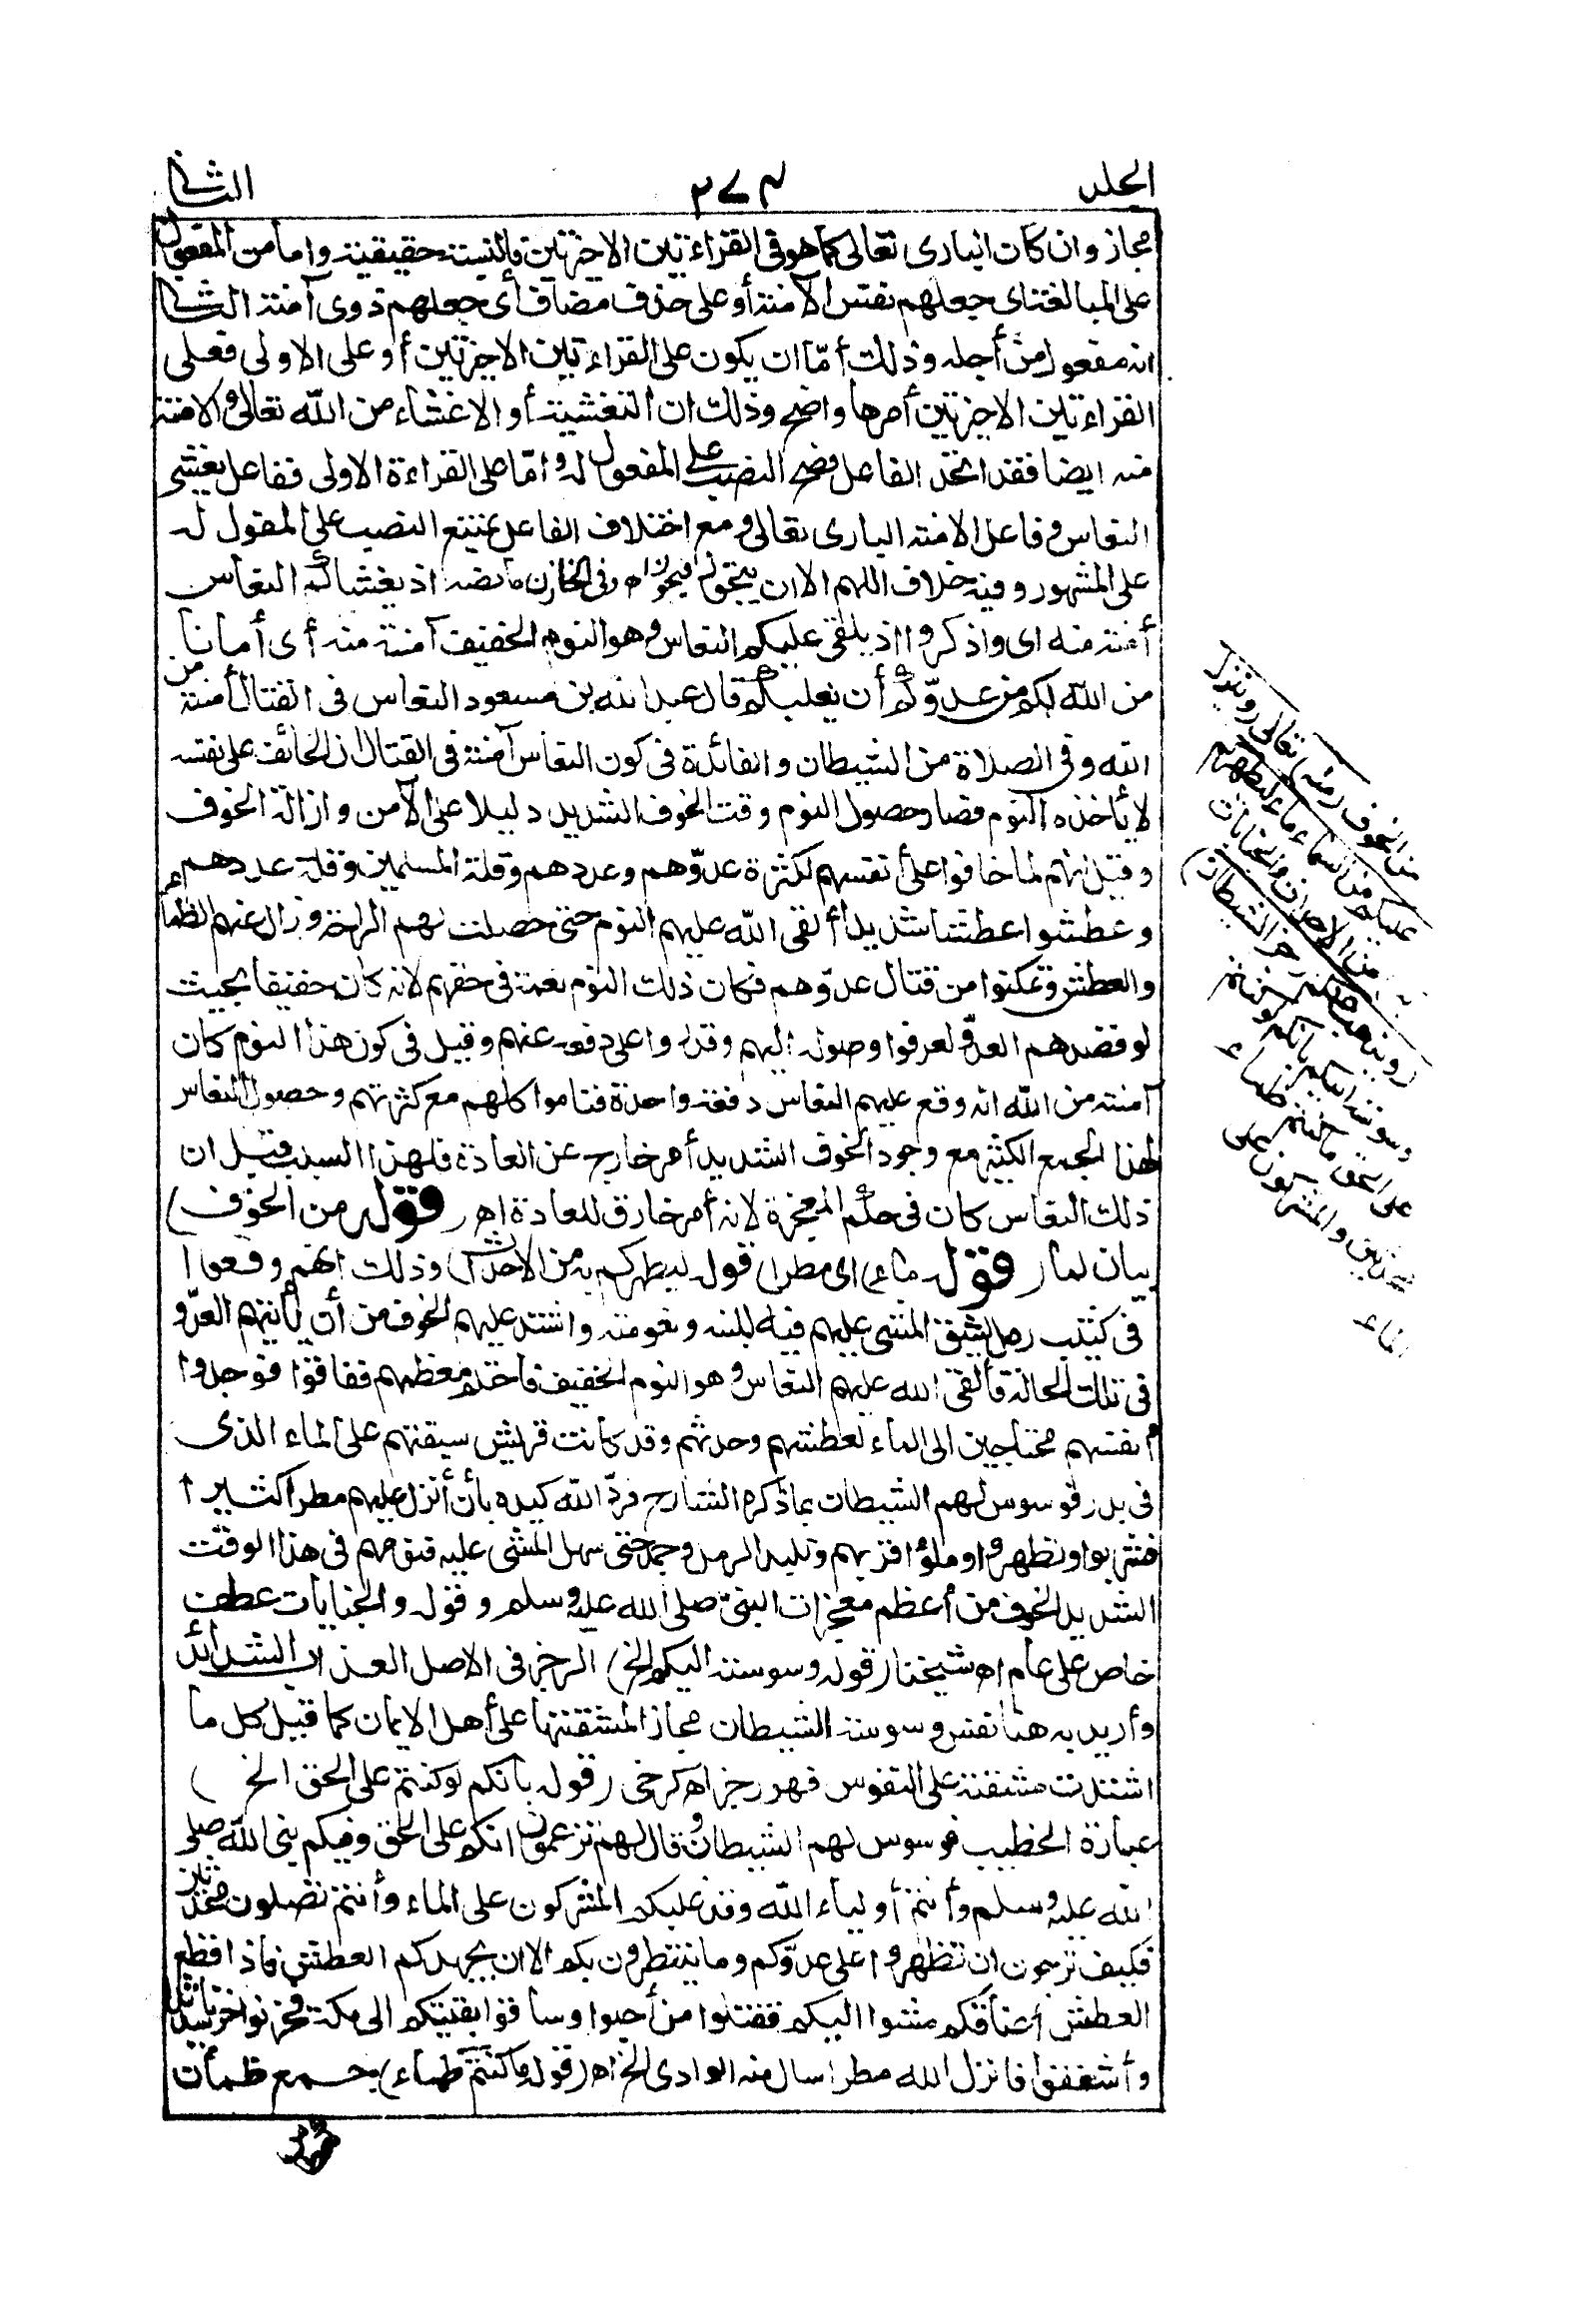 الجلد ٢٧٤ الثاني
مجاز وان كان الباري تعالى كما هو في القراءتين الاخيرتين فالنسبة حقيقية واما من المفعول
على المبالغة اى جعلهم نفس الأمنة أو على حذف مضاف أى جعلهم ذوى أمنة الثاني
انه مفعول من أجله وذلك أمّا ان يكون على القراءتين الاخيرتين أو على الاولى فعلى
القراءتين الاخيرتين أمرها واضح وذلك ان التغشية أو الاغشاء من الله تعالى والامنة
منه ايضا فقد اتحد الفاعل فصح النصب على المفعول له وامّا على القراءة الاولى ففاعل يغشى
النعاس وفاعل الامنة البارى تعالى ومع اختلاف الفاعل يمتنع النصب على المفعول له
على المشهور وفيه خلاف اللهم الا ان يتجوز فيجوز اه وفى الخازن ما نصه اذ يغشاكم النعاس
أمنة منه اى واذكروا اذ يلقى عليكم النعاس وهو النوم الخفيف أمنة منه أى أمانا
من الله لكم من عدوّكم أن يغلبكم قال عبد الله بن مسعود النعاس فى القتال أمنة من
الله وفى الصلاة من الشيطان والفائدة فى كون النعاس أمنة فى القتال ان الخائف على نفسه
لا يأخذه النوم فصار حصول النوم وقت الخوف الشديد دليلا على الأمن وازالة الخوف
وقيل انهم لما خافوا على أنفسهم لكثرة عدوّهم وعددهم وقلة المسلمين وقلة عددهم
وعطشوا عطشا شديدا ألقى الله عليهم النوم حتى حصلت لهم الراحة وزال عنهم الظمأ
والعطش وتمكنوا من قتال عدوّهم فكان ذلك النوم نعمة فى حقهم لانه كان خفيفا بحيث
لو قصدهم العدوّ لعرفوا وصوله اليهم وقدروا على دفعه عنهم وقيل فى كون هذا النوم كان
أمنة من الله انه وقع عليهم النعاس دفعة واحدة فناموا كلهم مع كثرتهم وحصول النعاس
لهذا الجمع الكثير مع وجود الخوف الشديد أمر خارج عن العادة فلهذا السبب قيل ان
ذلك النعاس كان فى حكم المعجزة لانه أمر خارق للعادة اه (قوله من الخوف)
بيان لما (قوله ماء) اى مطرا (قوله ليطهركم به من الاحداث) وذلك انهم وقعوا
فى كثيب رمل يشق المشى عليهم فيه للينه ونعومته واشتد عليهم الخوف من أن يأتيهم العدوّ
فى تلك الحالة فألقى الله عليهم النعاس وهو النوم الخفيف فاحتلم معظمهم ففاقوا فوجدوا
أنفسهم محتاجين الى الماء لعطشهم وحدثهم وقد كانت قريش سبقتهم على الماء الذى
فى بدر فوسوس لهم الشيطان بما ذكره الشارح فردّ الله كيده بأن أنزل عليهم مطرا كثيرا
فشربوا وتطهروا وملؤا قربهم وتلبد الرمل وجمد حتى سهل المشى عليه فنومهم فى هذا الوقت
الشديد الخوف من أعظم معجزات النبىّ صلى الله عليه وسلم وقوله والجنابات عطف
خاص على عام اه شيخنا (قوله وسوسته اليكم الخ) الرجز فى الاصل العذاب الشدائد
وأريد به هنا نفس وسوسة الشيطان مجازا لمشقتها على أهل الايمان كما قيل كل ما
اشتدت مشقته على النفوس فهو رجز اه كرخى (قوله بأنكم لو كنتم على الحق الخ)
عبارة الخطيب فوسوس لهم الشيطان وقال لهم تزعمون انكم على الحق وفيكم نبى الله صلى
الله عليه وسلم وأنتم أولياء الله وقد غلبكم المشركون على الماء وأنتم تصلون محدثين
فكيف ترجون ان تظهروا على عدوّكم وما ينتظرون بكم الا ان يجهدكم العطش فاذا قطع
العطش أعناقكم مشوا اليكم فقتلوا من أحبوا وساقوا بقيتكم الى مكة فحزنوا حزنا شديدا
وأشفقوا فانزل الله مطرا سال منه الوادى الخ اه (قوله ما كنتم ظماء) جمع ظمآن
من الخوف (منه) تعالى (وينزل
عليكم من السماء ماء ليطهركم
به) من الاحداث والجنابات
(ويذهب عنكم رجز الشيطان)
وسوسته اليكم بانكم لو كنتم
على الحق ما كنتم ظماء
محدثين والمشركون على
الماء